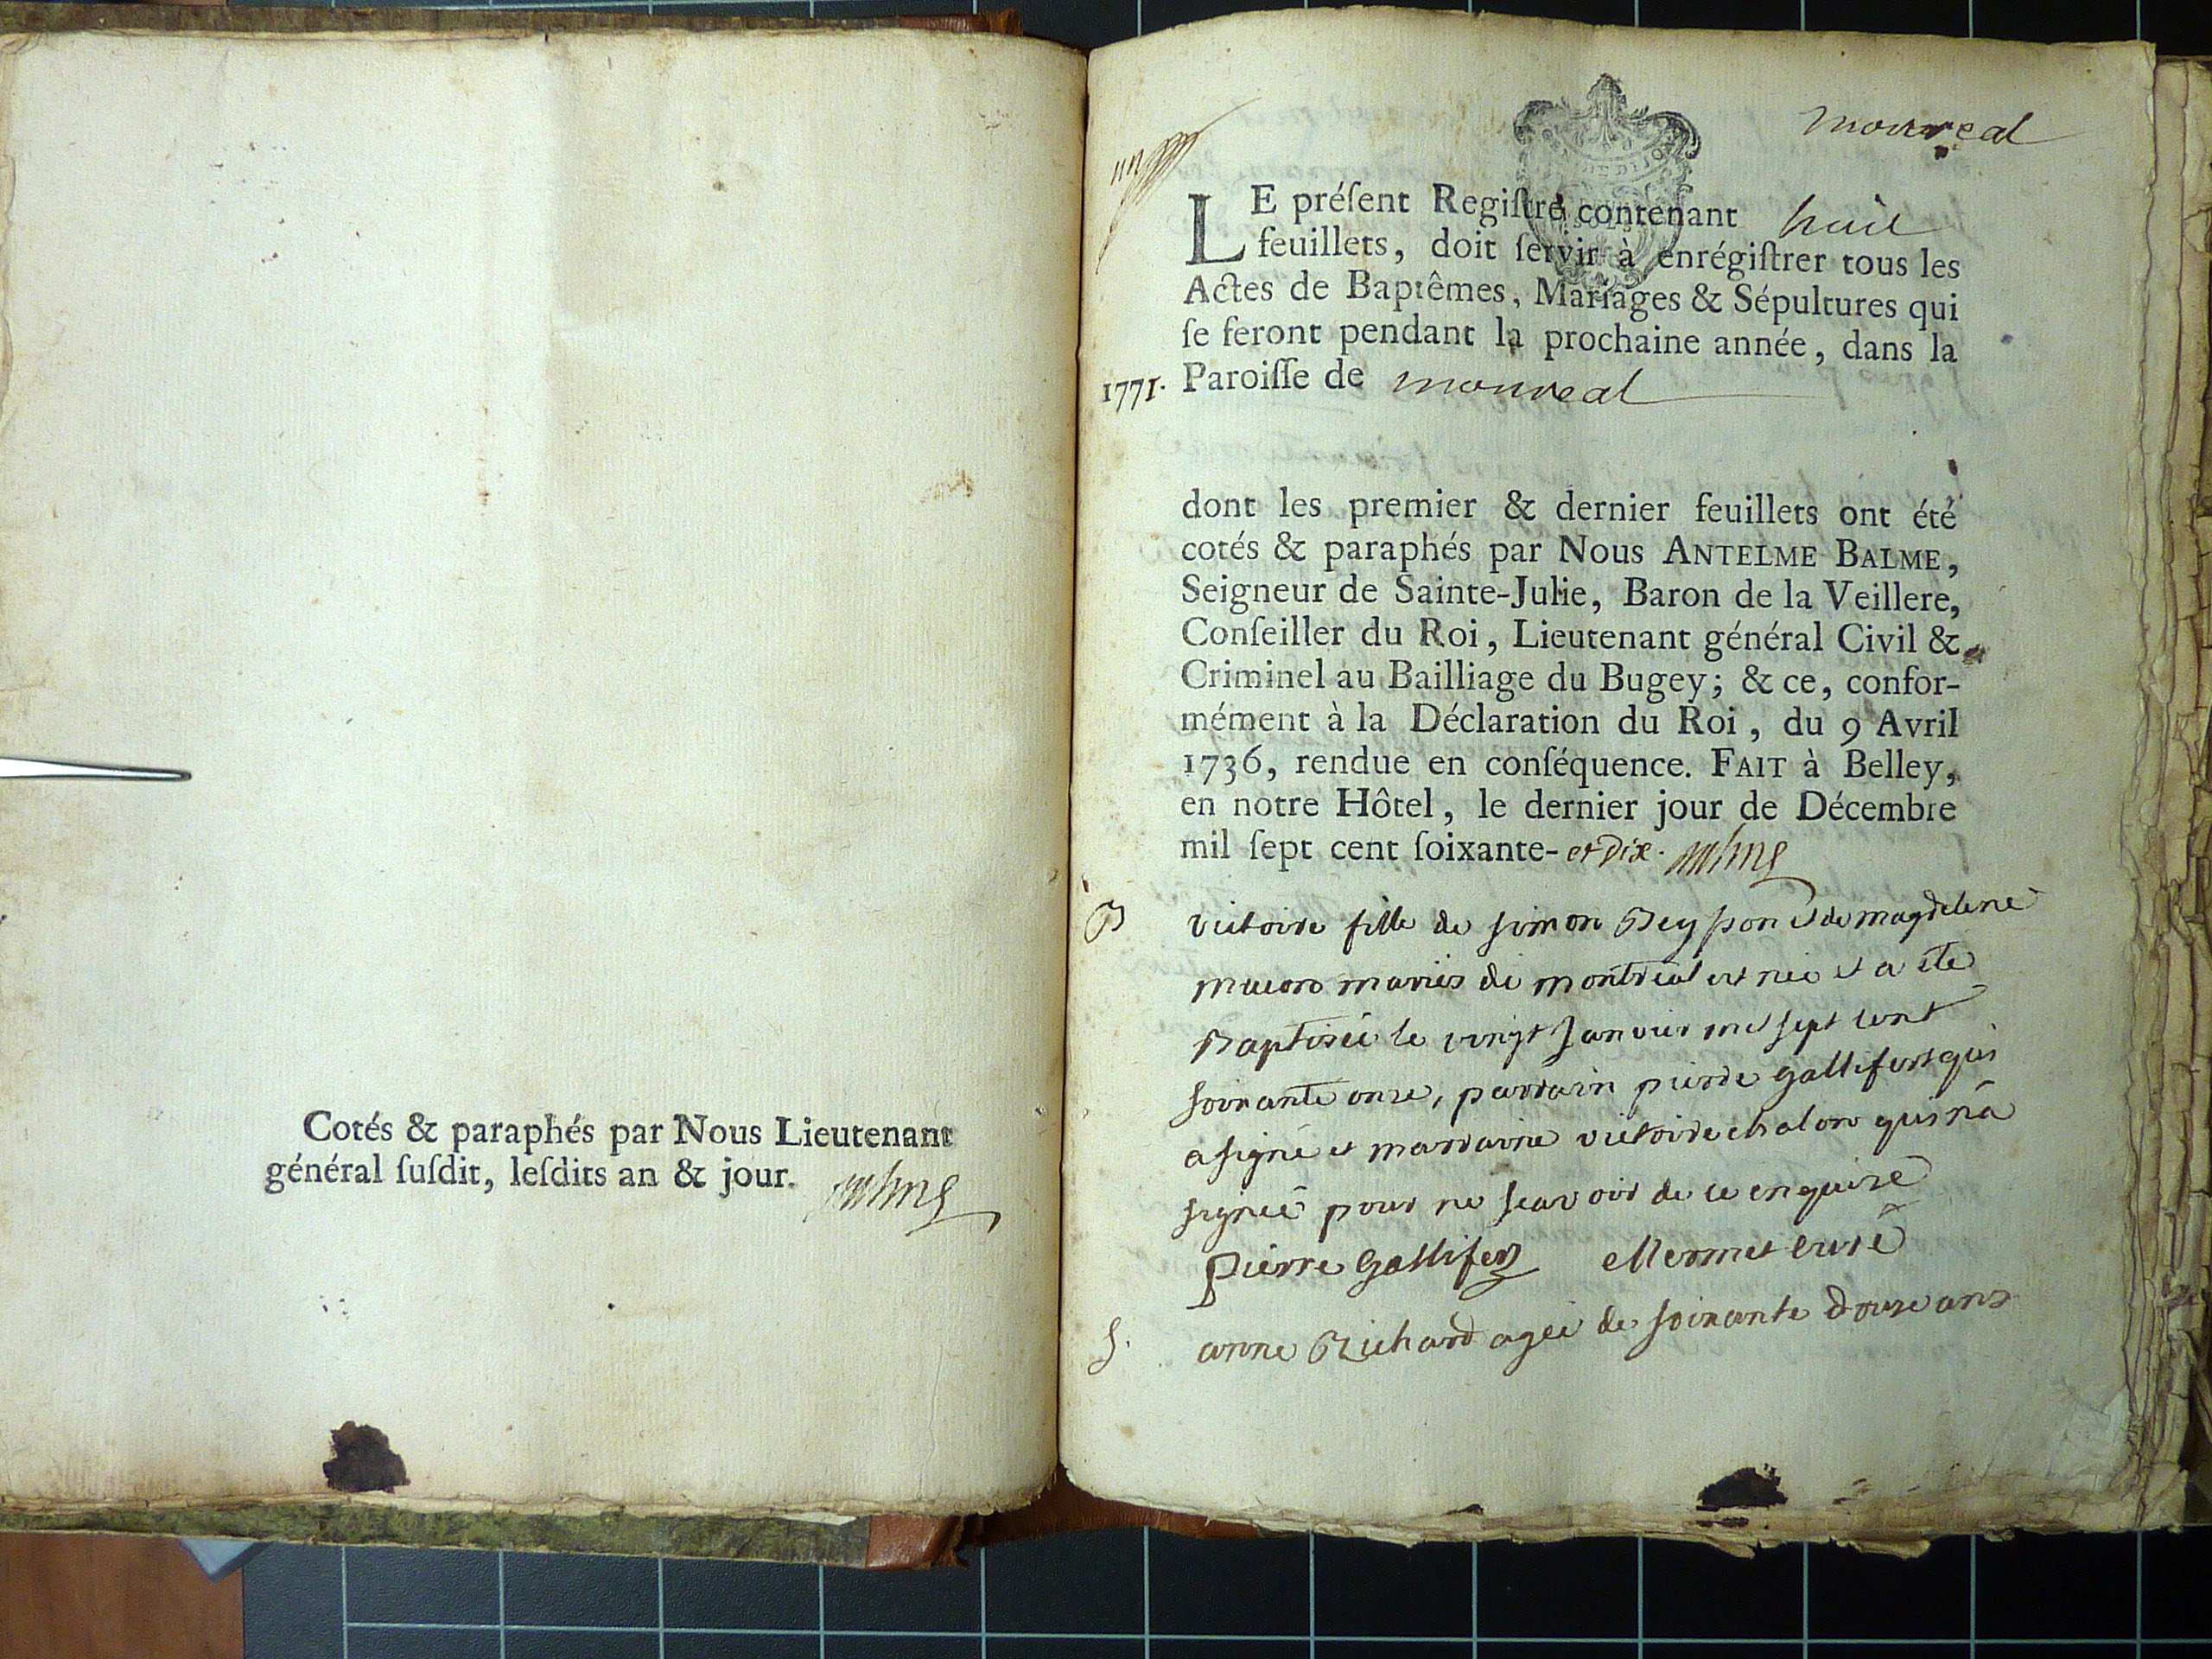 Cotés & paraphés par Nous Lieutenant
général ſuſdit, leſdits an & jour.
monreal
LE préſent Regiſtre contenant huit
feuillets, doit ſervir à enrégiſtrer tous les
Actes de Baptêmes, Mariages & Sépultures qui
ſe feront pendant la prochaine année, dans la
1771. Paroiſſe de monreal
dont les premier & dernier feuillets ont été
cotés & paraphés par Nous ANTELME BALME,
Seigneur de Sainte-Julie, Baron de la Veillere,
Conſeiller du Roi, Lieutenant général Civil &
Criminel au Bailliage du Bugey; & ce, confor-
mément à la Déclaration du Roi, du 9 Avril
1736, rendue en conſéquence. FAIT à Belley,
en notre Hôtel, le dernier jour de Décembre
mil ſept cent ſoixante- et Dix.
B victoire fille de simon Beysson et de magdelene
maron mariés de montreal est neé et a eté
Baptisée le vingt Janvier mil sept cent
soixante onze, parrain pierre gallifert qui
a signé et marraine victoire chalon qui n'a
signeé pour ne scavoir de ce enquise
pierre gallifert Mermet curé
S. anne Richard ageé de soixante douze ans